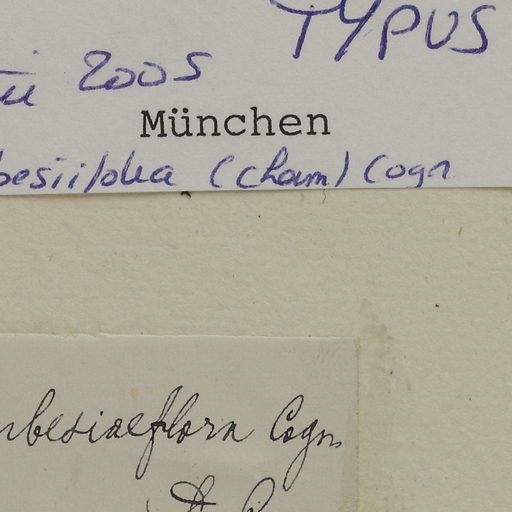 TYPUS
2005
München
besiiflora (Cham) Cogn
mbesiaeflora Cogn